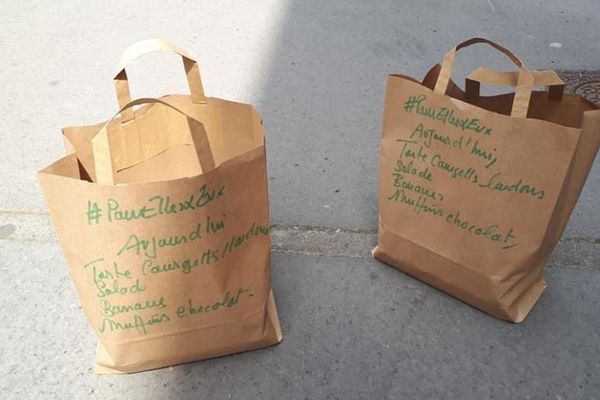 #PourEllesxEux
Aujourd'hui
Tarte Courgetts/lardons
Salade
Bananes
Muffins chocolat.
#PourEllesxEux
Aujourd'hui,
Tarte Courgetts, lardons
Salade
Bananes
Muffins chocolat,